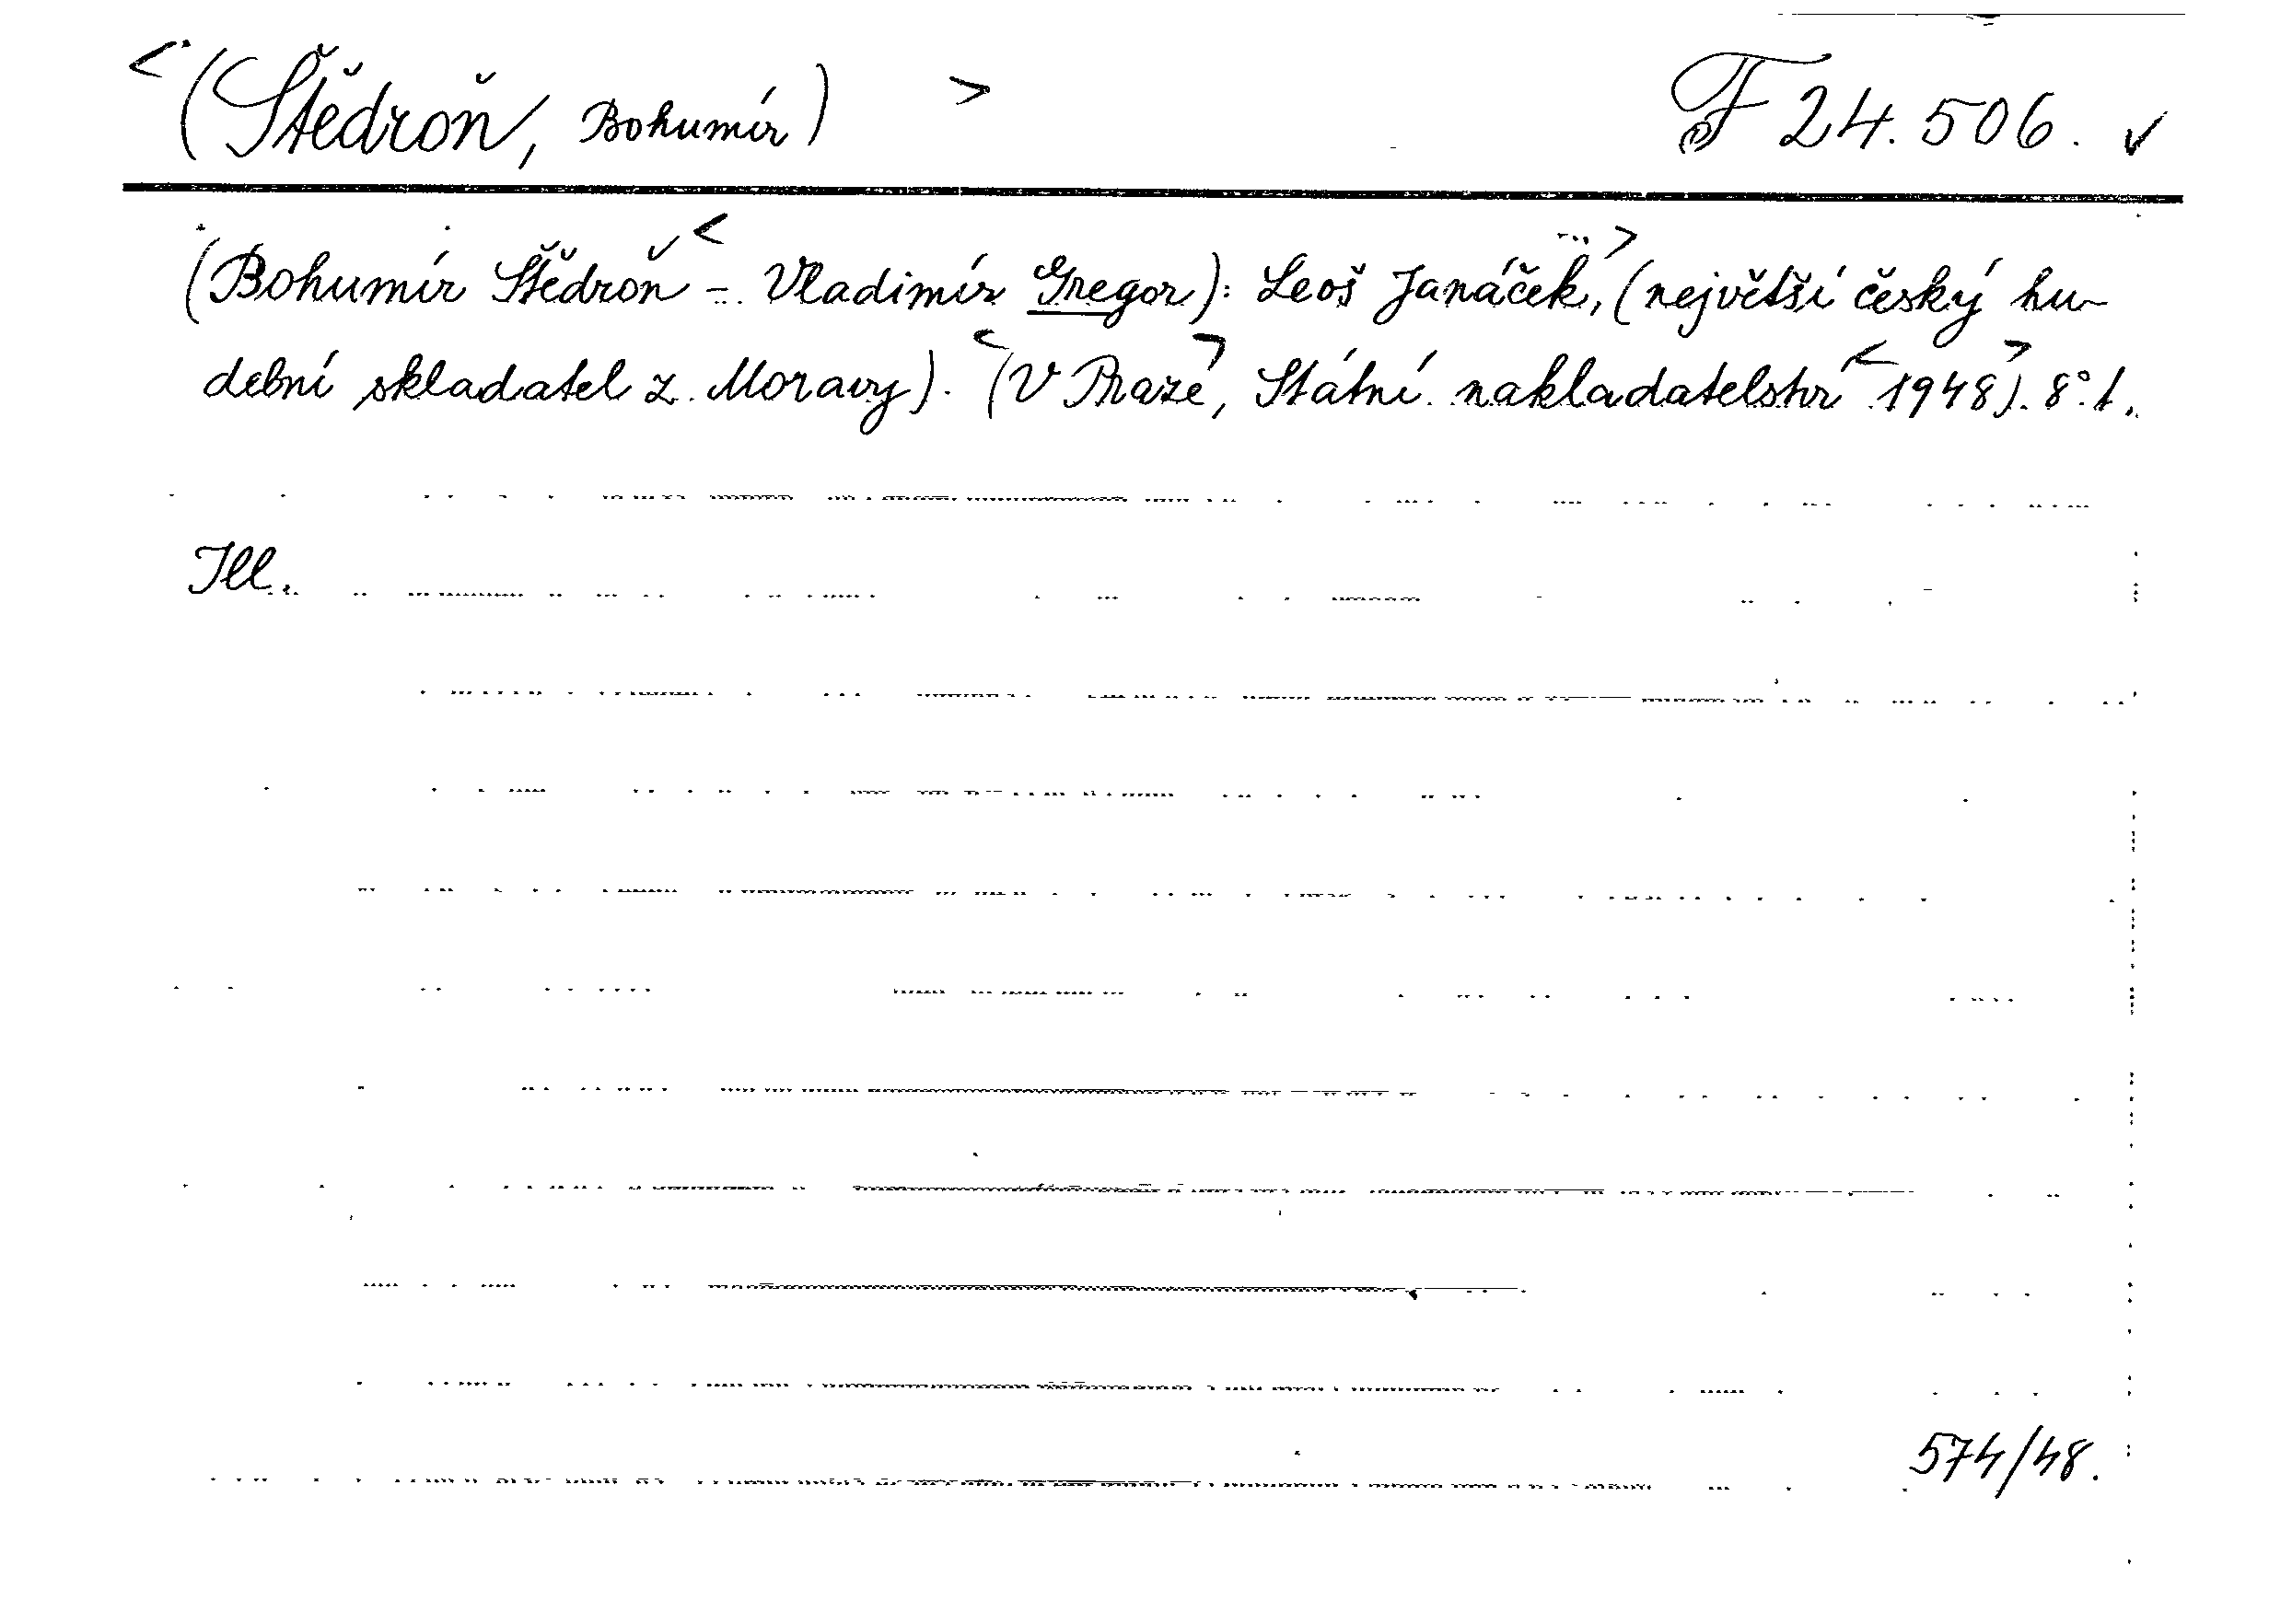 <(Štědroň, Bohumír) > F 24.506. ✓
(Bohumír Štědroň <– Vladimír Gregor): Leoš Janáček,> (největší český hu-
dební skladatel z Moravy). <(V Praze>, Státní nakladatelství <1948>). 8°. 1.
Ill.
574/48.